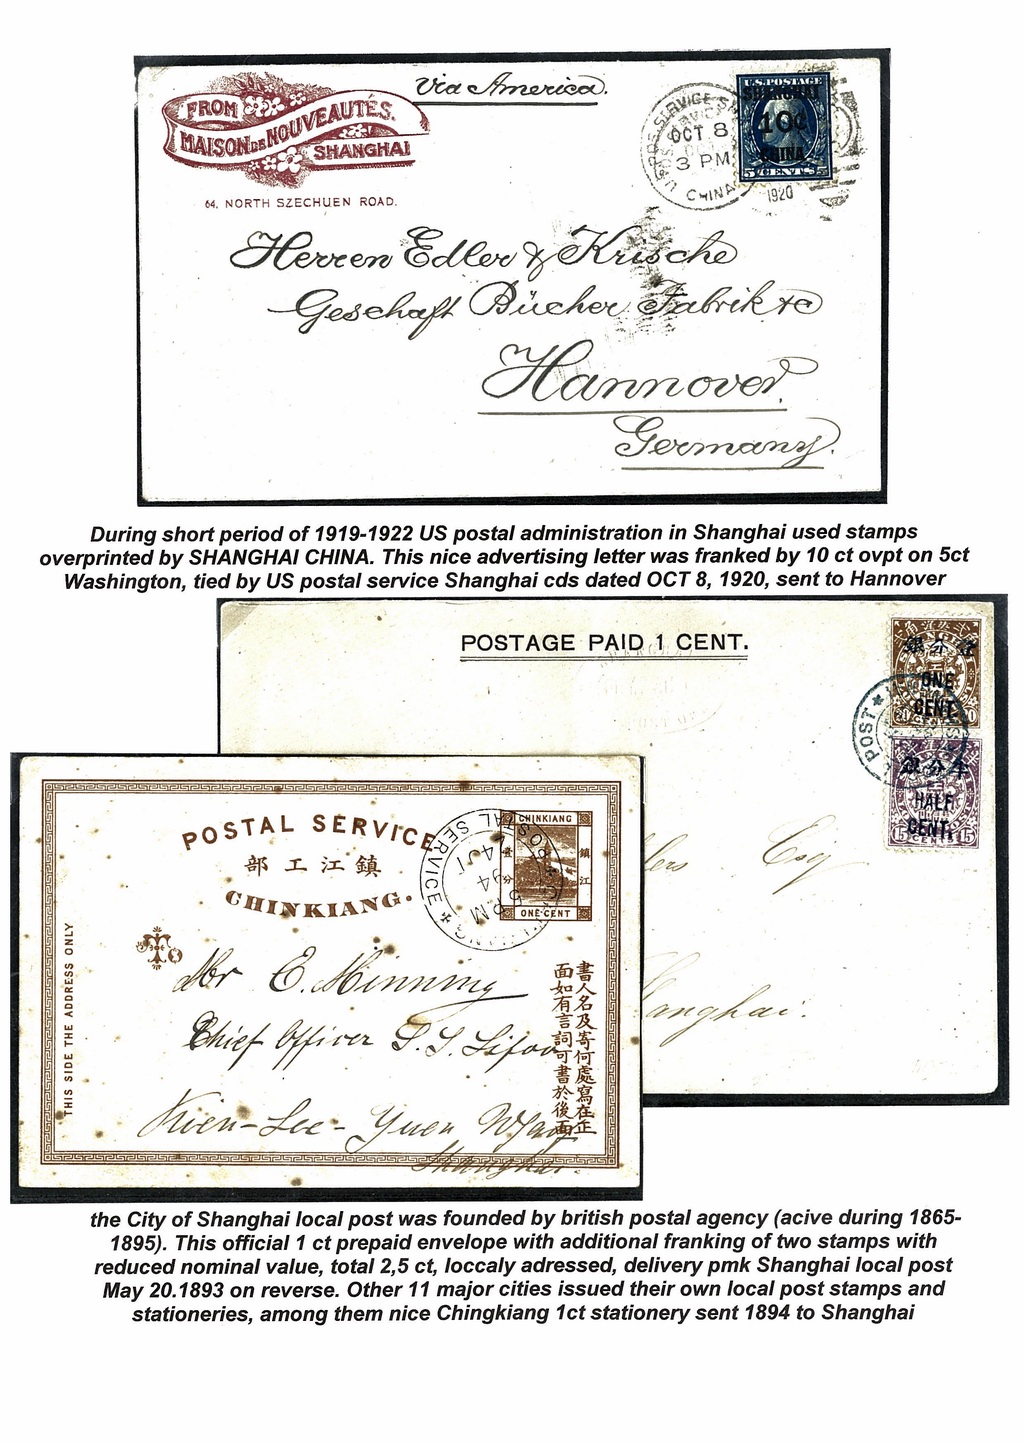 Via America.
FROM
MAISON DE NOUVEAUTÉS.
SHANGHAI
64, NORTH SZECHUEN ROAD.
U.S. POSTAGE
SHANGHAI
10¢
CHINA
5 CENTS 5
OCT 8
3 PM
CHINA
1920
Herren Edler & Krische
Geschaft Bücher Fabrik
Hannover
Germany.
During short period of 1919-1922 US postal administration in Shanghai used stamps
overprinted by SHANGHAI CHINA. This nice advertising letter was franked by 10 ct ovpt on 5ct
Washington, tied by US postal service Shanghai cds dated OCT 8, 1920, sent to Hannover
POSTAGE PAID 1 CENT.
ONE
CENT.
20 CENTS 20
POST
HALF
CENT.
15 CENTS 15
Esq
Shanghai.
POSTAL SERVICE
部工江鎮
CHINKIANG.
CHINKIANG
壹分
鎮江
ONE CENT
POSTAL SERVICE
94
5 PM
THIS SIDE THE ADDRESS ONLY
To
Mr E. Minning
Chief Officer S.S.
Kien-Lee-Yuen
Shanghai.
書人名及寄何處寫在正
面如有言詞可書於後面
the City of Shanghai local post was founded by british postal agency (acive during 1865-
1895). This official 1 ct prepaid envelope with additional franking of two stamps with
reduced nominal value, total 2,5 ct, loccaly adressed, delivery pmk Shanghai local post
May 20.1893 on reverse. Other 11 major cities issued their own local post stamps and
stationeries, among them nice Chingkiang 1ct stationery sent 1894 to Shanghai